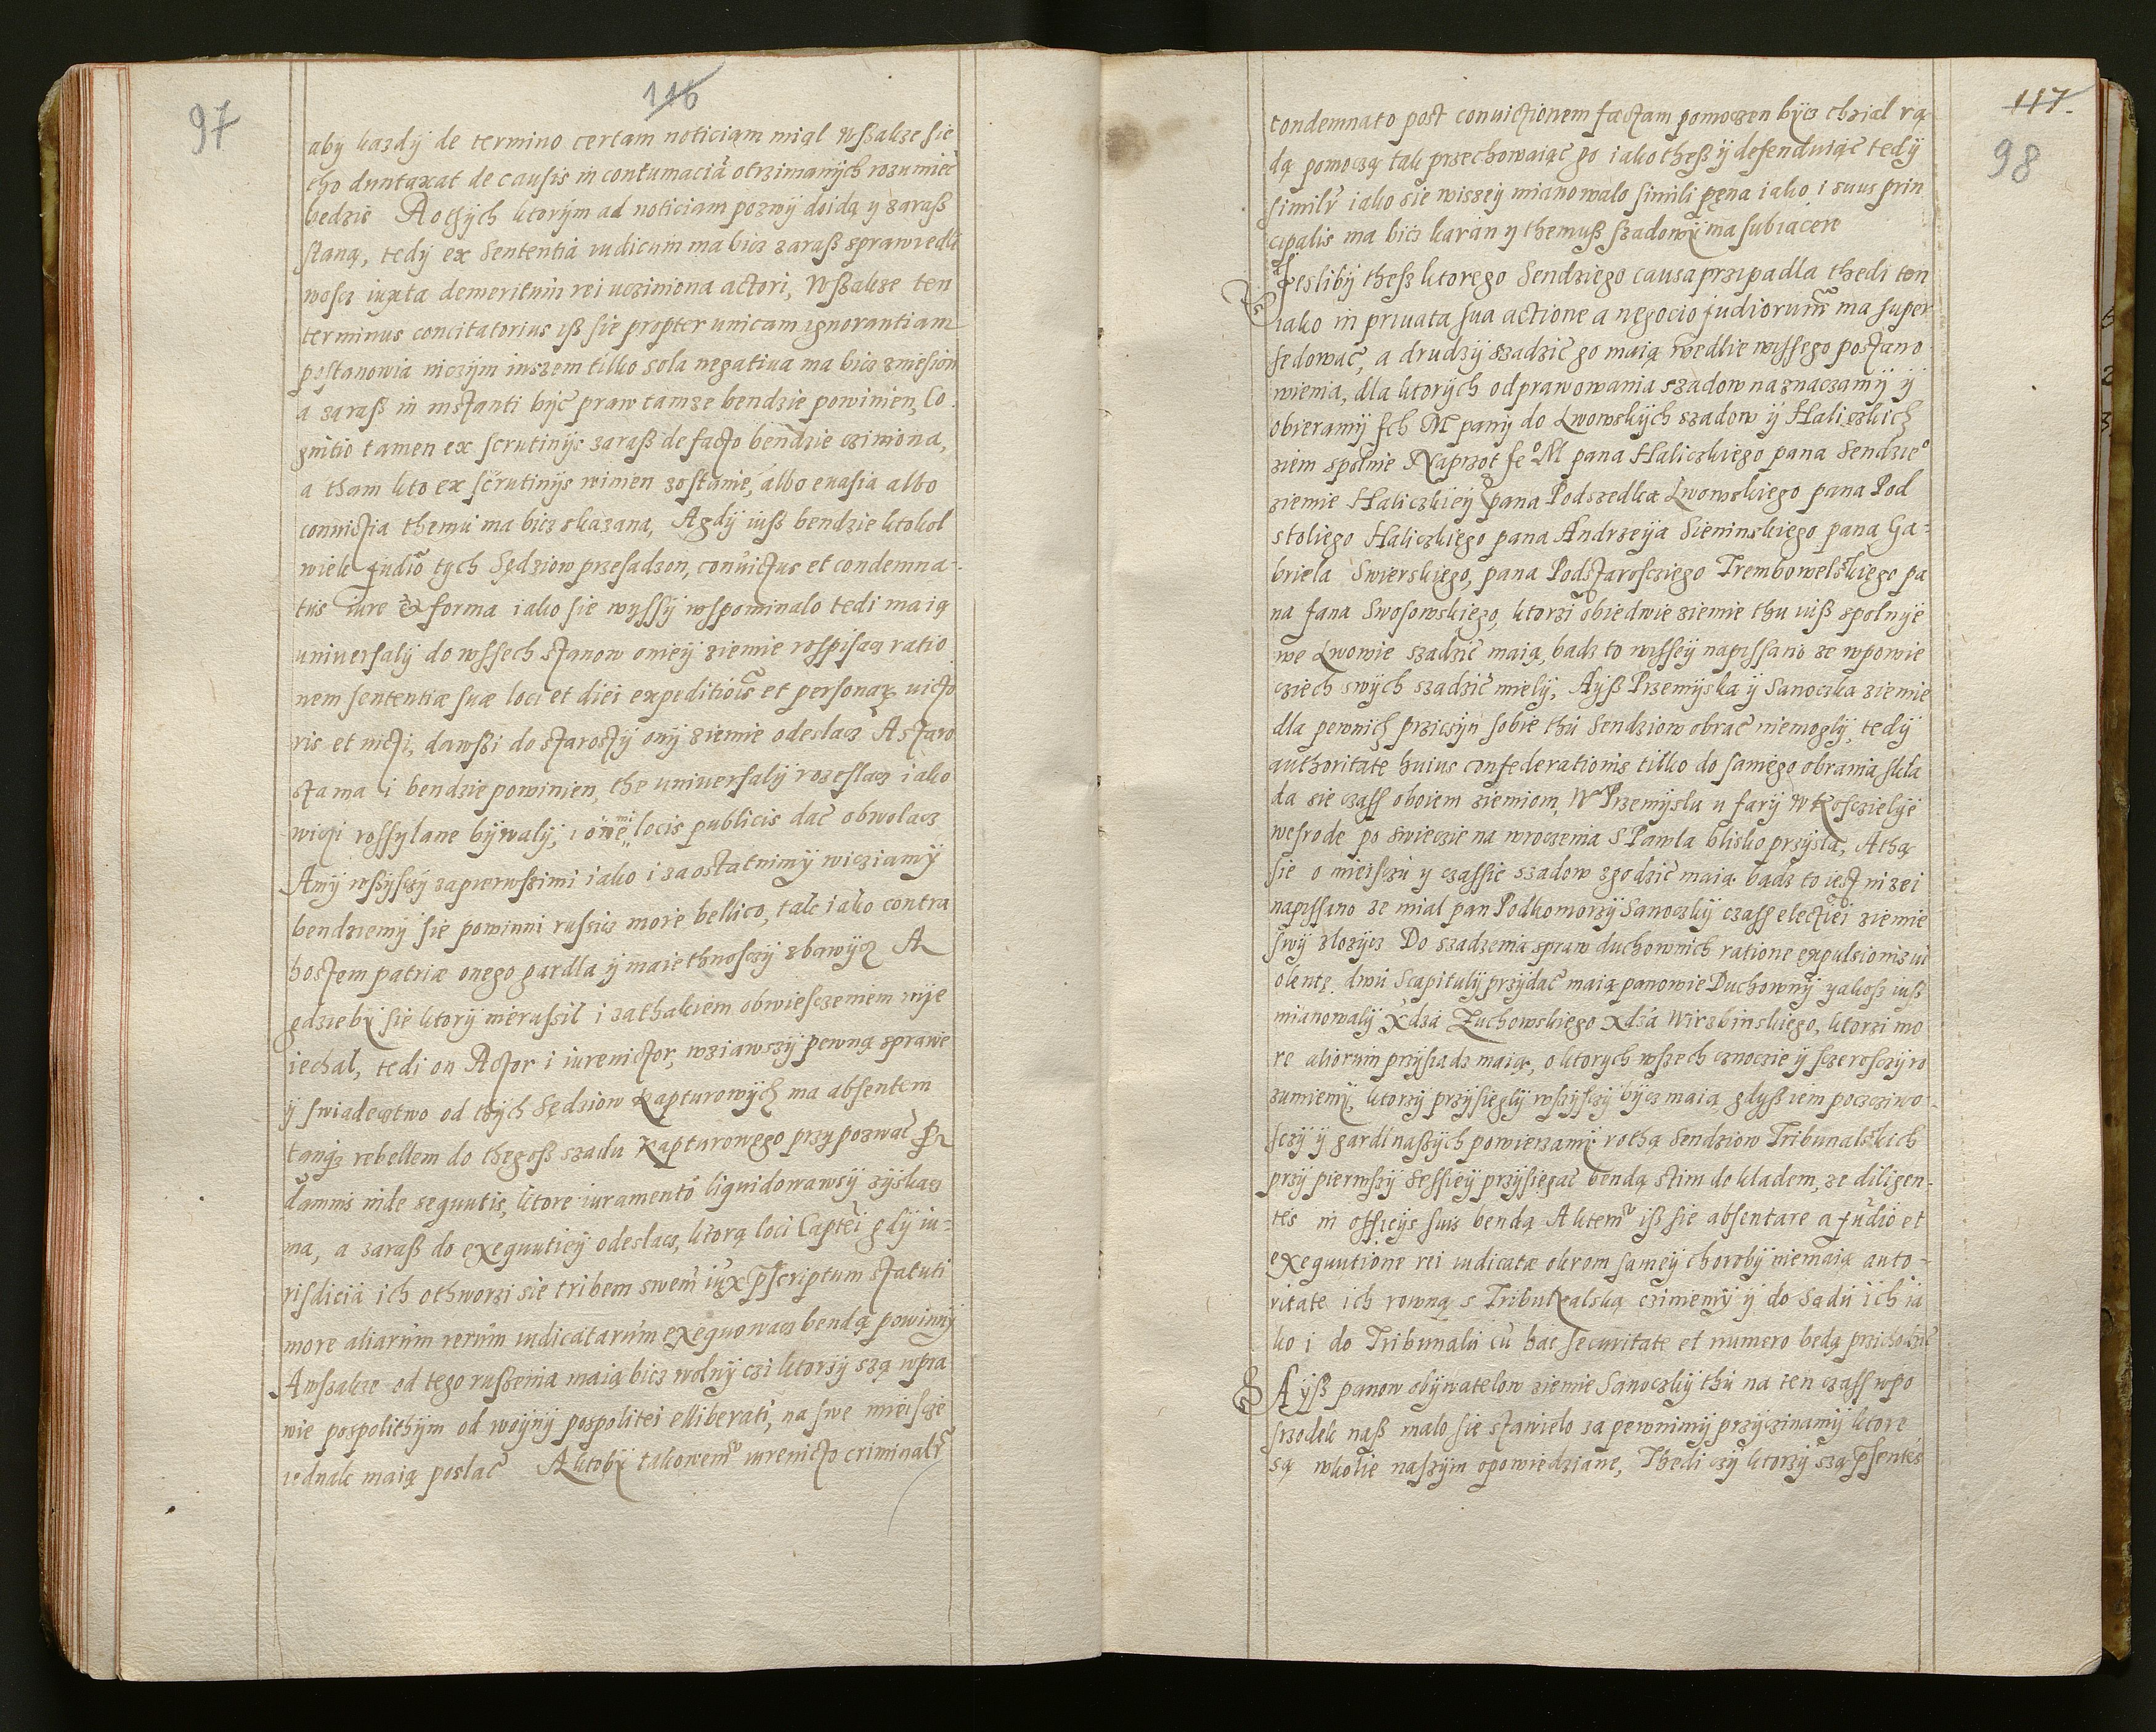 97
116
aby kazdÿ de termino certam noticiąm miąl wßakze sie
tho duntaxat de causis in contumaciā otrzimanÿch rozumieč
bedzie A othÿch ktorÿm ad noticiam pozwÿ doidą y zaraß
staną, tedÿ ex Sententia iudicum ma bicz zaraß sprawiedli
woscz iuxta demeritum rei ucziniona actori, Wßakze ten
terminus concitatorius iß sie propter unicam ignorantiam
postanowia niczÿm inszem tilko sola negatiua ma bicz zniesion
a zaraß in instanti byč praw tamze bendzie powinien, Co
gnitio tamen ex scrutinijs zaraß de facto bendzie cziniona,
a tham kto ex scrutinijs winien zostanie, albo euasia albo
conuictia themu ma bicz skazana, A gdÿ iuß bendzie ktokol
wiek judiō tych Sędziow przesadzon, conuictus et condemna-
tus iure & forma iako sie wyssÿ wspominalo tedi maią
uniuersalÿ do wssech stanow onieÿ ziemie rospisacz ratio
nem sententiæ suæ loci et diei expeditiois et personarum uicto
ris et uicti, dawßi do starostÿ onÿ ziemie odeslacz A staro
sta ma i bendzie powinien, the uniuersalÿ rozeslacz iako
wiczi rossylane bÿwalÿ, i onemi locis publicis dač obwolacz
Amÿ wßÿsczÿ zapierwszimi iako i zaostatnimÿ wicziamÿ
bendziemÿ sie powinni russicz more bellico, tak iako contra
hostem patriæ onego gardla ÿ maiethnosczÿ zbawÿcz A
gdzieby sie ktorÿ nierussil i zathakiem obwiesczeniem nije
iechal, tedi on Actor i iureuictor, wziawszÿ pewną sprawe
ÿ swiadectwo od tÿch Sędziow Kapturowÿch ma absentem
tanqz rebellem do thegoß szadu Kapturowego przypozwač pr
damnis inde sequutis, ktore iuramentō liquidowawsÿ zÿskacz
ma, a zaraß do exequutieÿ odeslacz, ktorą loci Captēi gdÿ iu=
risdicia ich othworzi sie tribem swem iux pscriptum statuti
more aliarum rerum iudicatarum exequowacz bendą powinnÿ
Awßakze od tego rußenia maią bicz wolnÿ czi ktorzÿ szą wpra
wie pospolithÿm od woÿnÿ pospolitei elliberati, na swe mieisce
iednak maią poslač A ktobÿ takowemu iureuicto criminalr
117
98
condemnato post conuictionem factam pomoczen bÿcz chzial rą
dą pomoczą tak przechowaiąč go iako theß ÿ defenduiąč tedÿ
similr iako sie wiszeÿ mianowalo simili pęna iako i suus prin
cipalis ma bicz karan y themuß szadowÿ ma subiacere
Jeslibÿ theß ktorego Sendziego causa przipadla thedi ten
iako in priuata sua actione a negocio judiorum ma super
sedowač, a drudzÿ szadzič go maią wedlie wissego postano
wienia, dla ktorÿch odprawowania szadow naznaczamÿ ÿ
obieramÿ Jch M panÿ do Lwowskÿch szadow ÿ Haliczkich
ziem spolnie Naprzot Jeo M pana Haliczkiego pana Sendzieo
ziemie Haliczkieÿ pana Podszedka Lwowskiego pana Pod
stoliego Haliczkiego pana Andrzeÿa Sieninskiego pana Ga=
briela Swierskiego, pana Podstarosciego Trembowelskiego pa
na Jana Swosowskiego, ktorzi obiedwie ziemie thu iuß spolnÿe
we Lwowie szadzič maią, badz to wisseÿ napissano ze wpowie
cziech swÿch szadzič mielÿ, Aÿß Przemÿska ÿ Sanoczka ziemie
dla pewnich przicżÿn sobie thu Sendziow obrač niemoglÿ, tedÿ
authoritate huius confederationis tilko do samego obrania skla
da sie czass oboiem ziemiom, W Przemÿslu u farÿ W Kosczielÿe
wesrode po swieczie na wroczenia S Pawla blisko przÿsla, Athą
sie o mieisczu y czassie szadow zgodzič maią badz to iest nizei
napissano ze mial pan Podkomorzÿ Sanoczkÿ czass electiei ziemie
swÿ zlozÿcz Do szadzenia spraw duchownich ratione expulsionis ui
olentę. dwu Scapitulÿ przÿdač maią panowie Duchownÿ yakosz iuß
mianowalÿ Xdza Zuchowskiego Xdza Wirzbinskiego, ktorzi mo
re aliorum przÿsiadz maią, o ktorych wszech cznoczie ÿ szczerosczÿ ro
zumiemÿ, ktorzÿ przÿsieglÿ wszÿsczÿ bÿcz maią gdÿß iem poczcziwo
sczÿ ÿ gardl naßÿch powierzamÿ rothą Sendziow Tribunalskich
przÿ pierwszÿ Sessieÿ przÿsięgač bendą stim dokladem, ze diligen-
tes in officijs suis bendą A ktemu iß sie absentare a judio et
exequutione rei iudicatæ okrom sameÿ chorobÿ niemaią auto-
ritate ich rowną s Tribunalską czinniemÿ ÿ do Sadu ich ia
ko i do Tribunalu cu hac securitate et numero będą prichodzič
Aÿß panow obÿwatelow ziemie Sanoczkÿ thu na ten czass wpo
srzodek naß malo sie stawielo za pewnimÿ przÿczinamÿ ktore
są wkolie naszÿm opowiedziane, Thedi czÿ ktorzÿ szą psentes